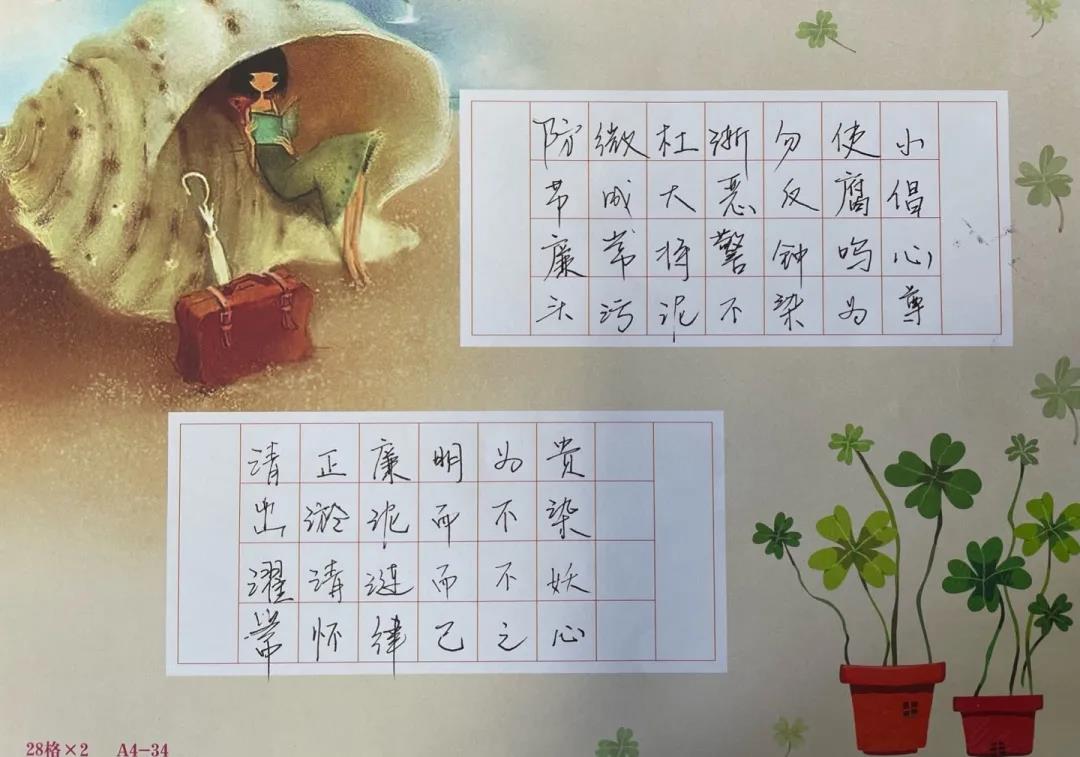 防微杜渐勿使小
节成大恶反腐倡
廉常将警钟鸣心
头污泥不染为尊
清正廉明为贵
出淤泥而不染
濯清涟而不妖
常怀律己之心
28格×2 A4-34